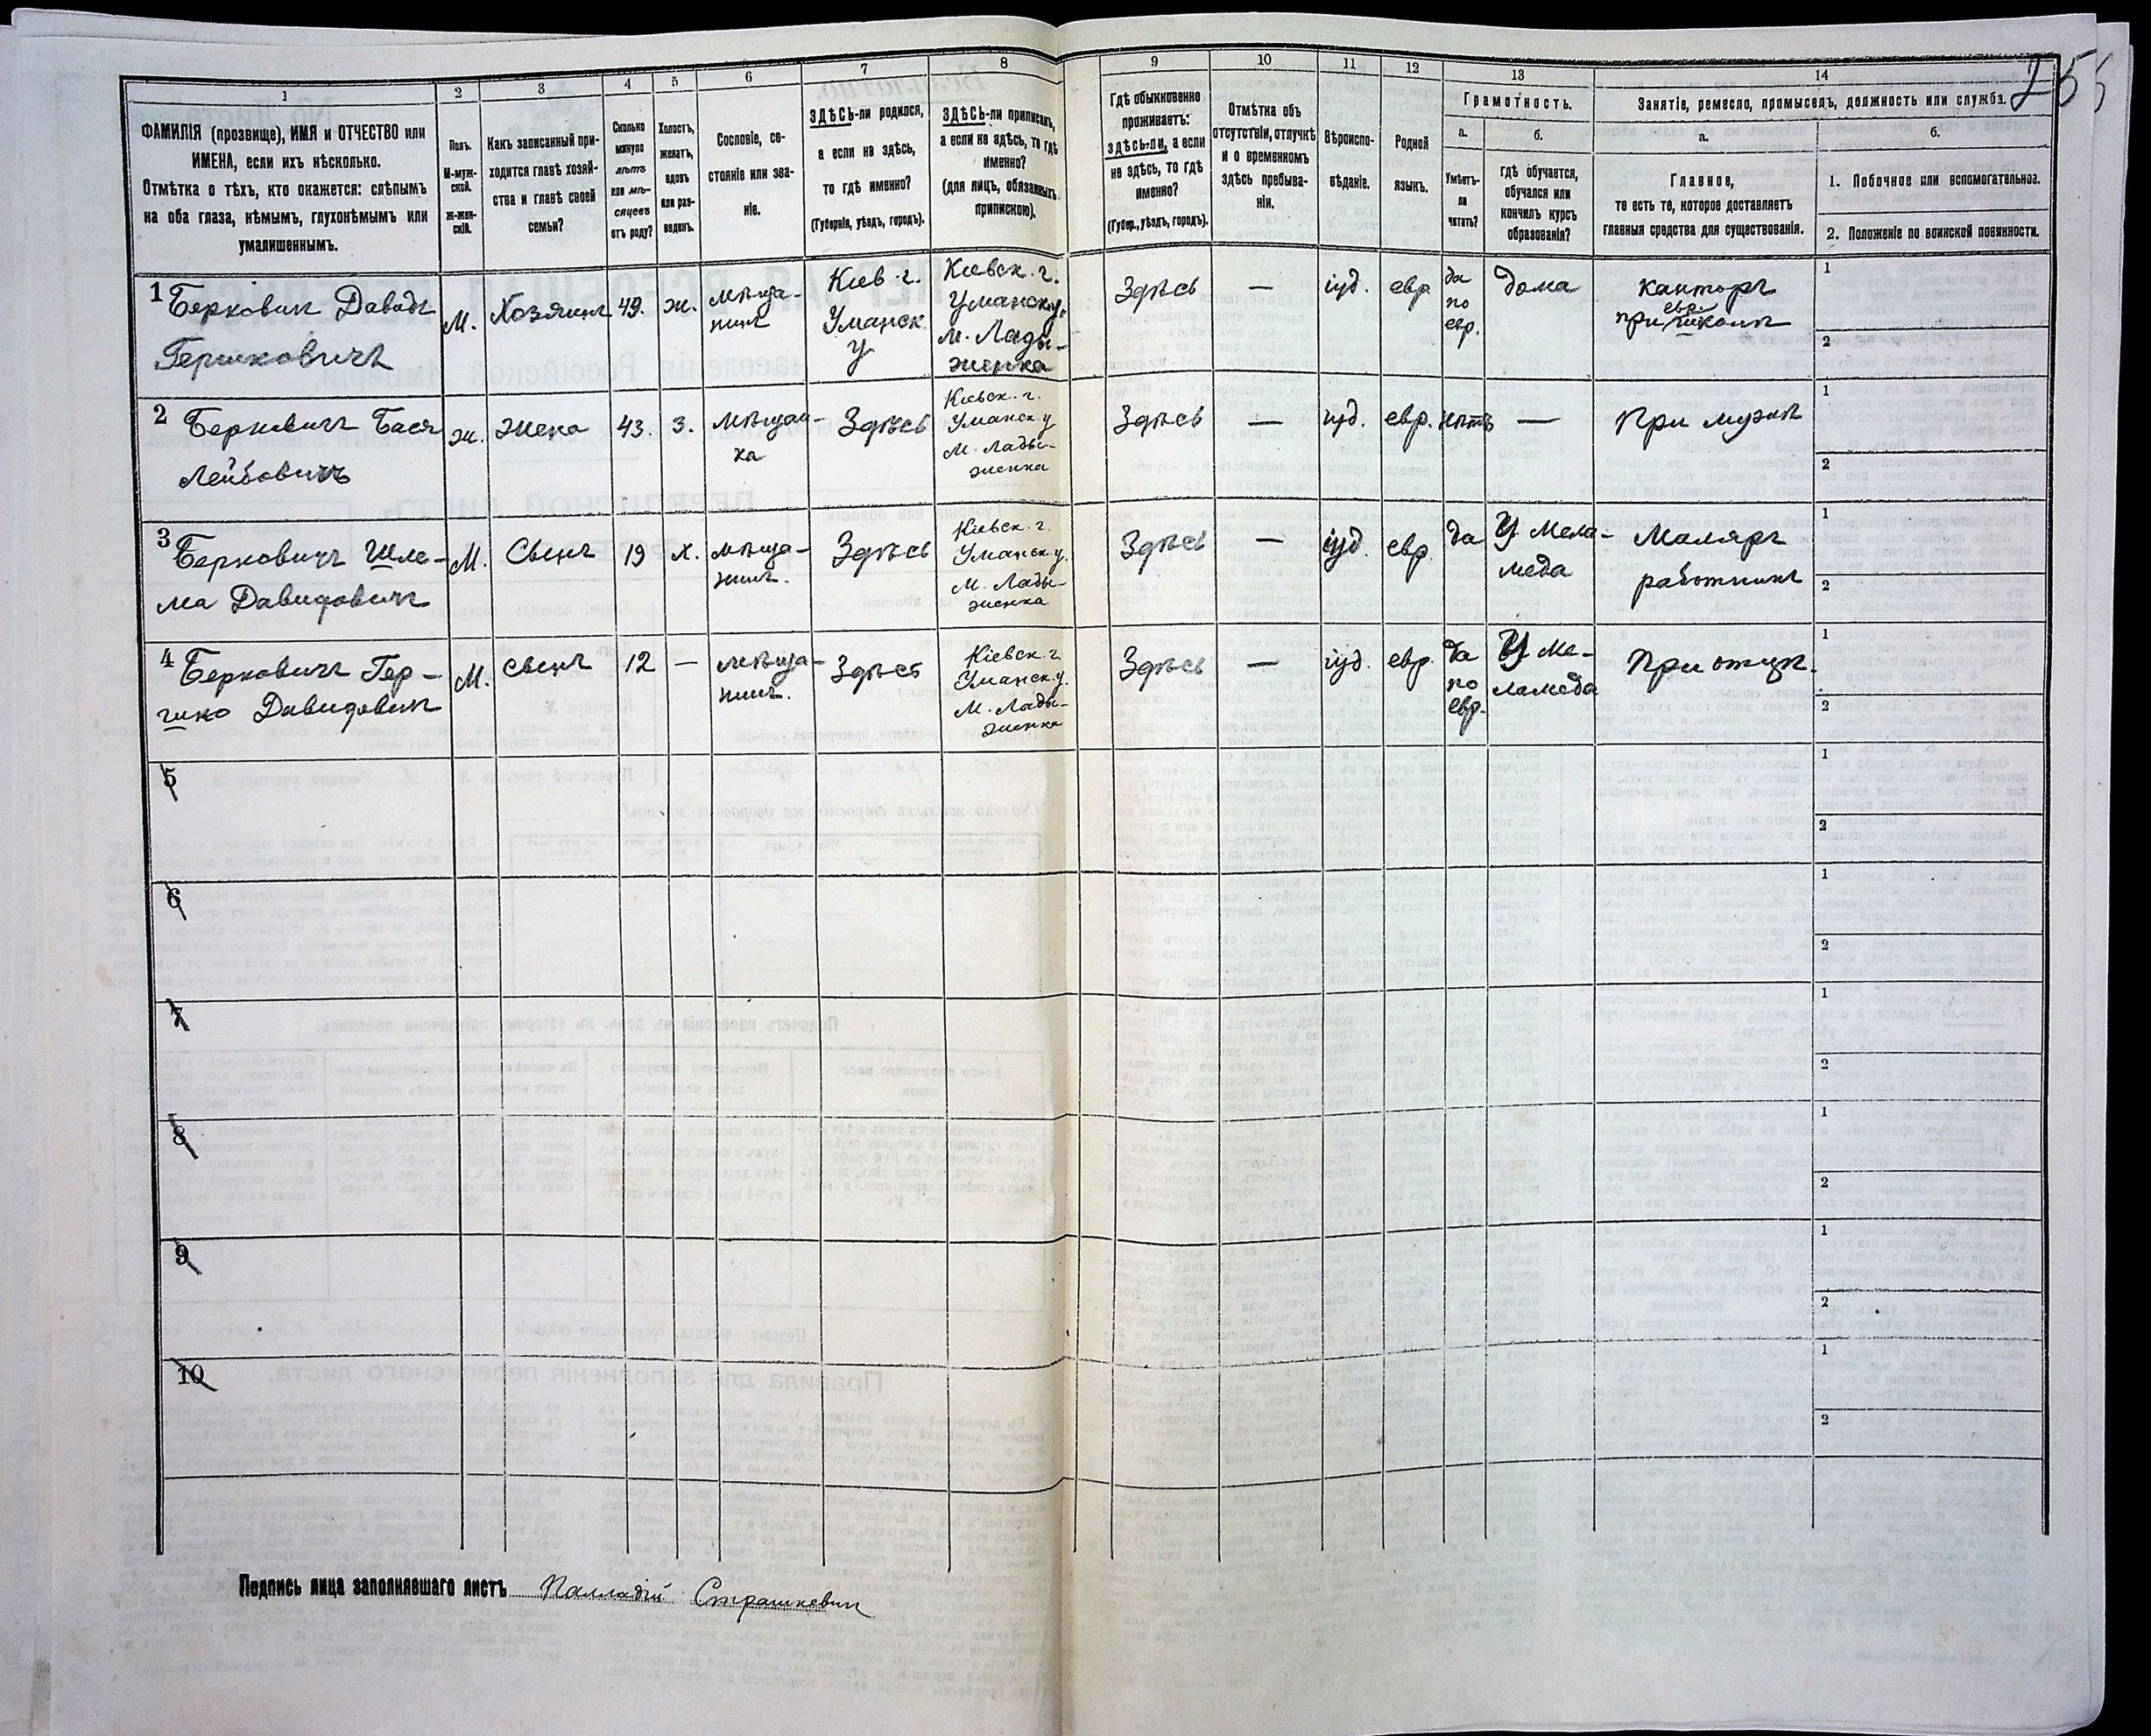 255
1
2
3
4
5
6
7
8
9
10
11
12
13
14
ФАМИЛІЯ (прозвище), ИМЯ и ОТЧЕСТВО или
ИМЕНА, если ихъ нѣсколько.
Отмѣтка о тѣхъ, кто окажется: слѣпымъ
на оба глаза, нѣмымъ, глухонѣмымъ или
умалишеннымъ.
Полъ.
М-муж-
ской.
Ж-жен-
скій.
Какъ записанный при-
ходится главѣ хозяй-
ства и главѣ своей
семьи?
Сколько
минуло
лѣтъ
или мѣ-
сяцевъ
отъ роду?
Холостъ,
женатъ,
вдовъ
или раз-
веденъ.
Сословіе, со-
стояніе или зва-
ніе.
ЗДѢСЬ-ли родился,
а если не здѣсь,
то гдѣ именно?
(Губернія, уѣздъ, городъ).
ЗДѢСЬ-ли приписанъ,
а если не здѣсь, то гдѣ
именно?
(для лицъ, обязанныхъ
припискою).
Гдѣ обыкновенно
проживаетъ:
здѣсь-ли, а если
не здѣсь, то гдѣ
именно?
(Губер., уѣздъ, городъ).
Отмѣтка объ
отсутствіи, отлучкѣ
и о временномъ
здѣсь пребыва-
ніи.
Вѣроиспо-
вѣданіе.
Родной
языкъ.
Грамотность.
а.
Умѣетъ-
ли
читать?
б.
гдѣ обучается,
обучался или
кончилъ курсъ
образованія?
Занятіе, ремесло, промыселъ, должность или служба.
а.
Главное,
то есть то, которое доставляетъ
главныя средства для существованія.
б.
1. Побочное или вспомогательное.
2. Положеніе по воинской повинности.
1
Берковичъ Давидъ
Гершковичъ
М.
Хозяинъ
49.
ж.
мѣща-
нинъ
Кіев. г.
Уманск
у
Кіевск. г.
Уманск. у.
м. Лады-
женка
Здѣсь
—
іуд.
евр
да
по
евр.
дома
канторъ
при евр. школѣ
1
2
2
Берковичъ Бася
Лейбовичъ
ж.
жена
43.
з.
мѣщан-
ка
Здѣсь
Кіевск. г.
Уманск. у
м. Лады-
женка
Здѣсь
—
іуд.
евр.
нѣтъ
—
При мужѣ
1
2
3
Берковичъ Шле-
ма Давидовичъ
М.
Сынъ
19
х.
мѣща-
нинъ.
Здѣсь
Кіевск. г.
Уманск. у.
м. Лады-
женка
Здѣсь
—
іуд.
евр.
да
У Мела-
меда
Маляръ
работникъ
1
2
4
Берковичъ Гер-
шко Давидовичъ
М.
сынъ
12
—
мѣща-
нинъ.
Здѣсь
Кіевск. г.
Уманск. у.
м. Лады-
женка
Здѣсь
—
іуд.
евр.
да
по
евр.
У Ме-
ламеда
При отцѣ.
1
2
5
1
2
6
1
2
7
1
2
8
1
2
9
1
2
10
1
2
Подпись лица заполнявшаго листъ Палладій Страшкевич